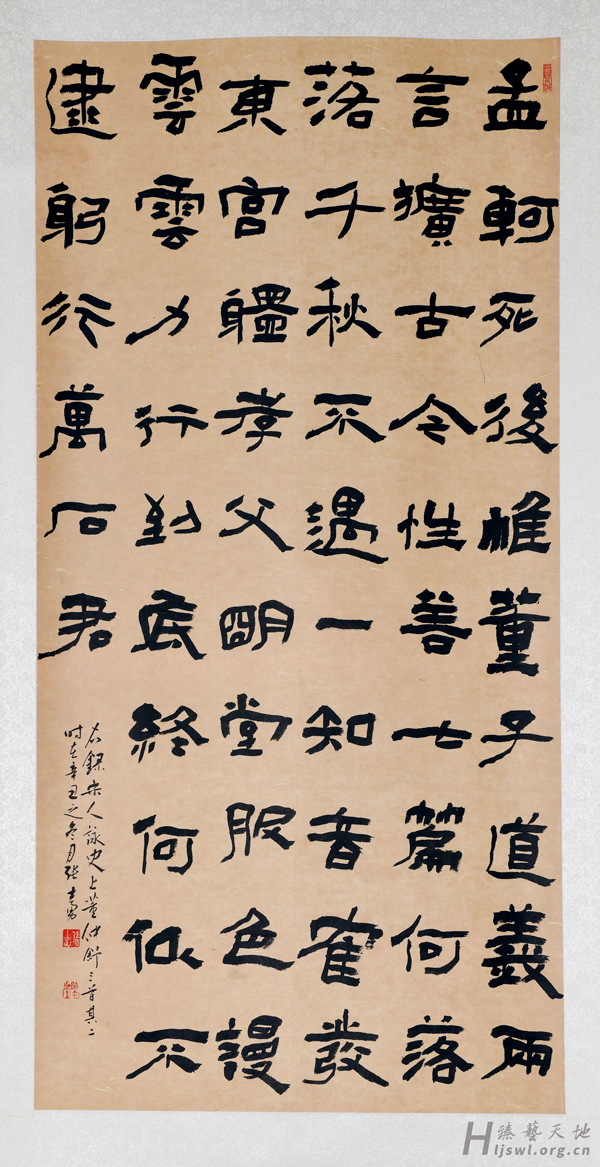 孟軻死後惟董子道義兩
言擴古今性善七篇何落
落千秋不遇一知音發
東宮軆孝父明堂服色謾
雲雲力行到底終何似不
逮躬行萬石君
右錄宋人詠史上董仲舒三首其二
时在辛丑之冬月張
臻藝天地
Hljswl.org.cn